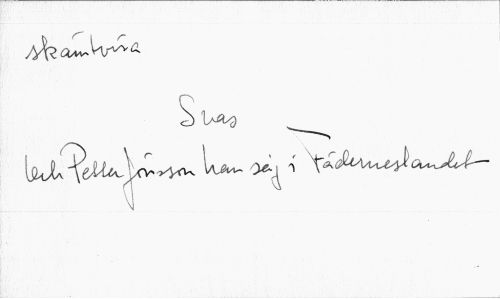 skämtvisa
Svas
och Pelle Jönsson han såg i Fäderneslandet